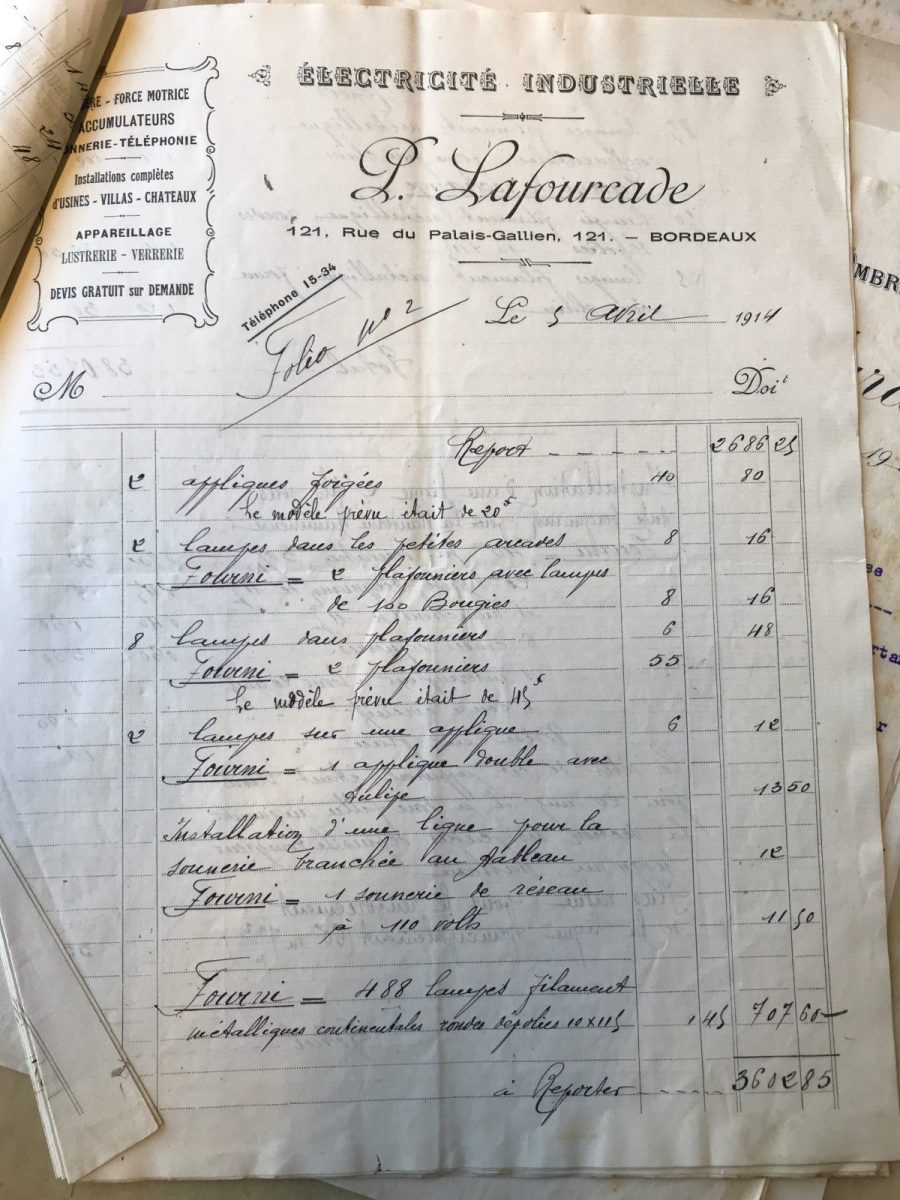 ÉLECTRICITÉ INDUSTRIELLE
P. Lafourcade
121, Rue du Palais-Gallien, 121. — BORDEAUX
ÈRE - FORCE MOTRICE
ACCUMULATEURS
ONNERIE-TÉLÉPHONIE
Installations complètes
d'USINES - VILLAS - CHATEAUX
APPAREILLAGE
LUSTRERIE - VERRERIE
DEVIS GRATUIT sur DEMANDE
Téléphone 15-34
Folio no 2
Le 5 avril 1914
M Doit
Report 2686 25
2 appliques forgées 40 80
Le modèle prévu était de 20f
2 lampes dans les petites arcades 8 16
Fourni = 2 plafonniers avec lampes
de 100 Bougies 8 16
8 lampes dans plafonniers 6 48
Fourni = 2 plafonniers 55
Le modèle prévu était de 45f
2 lampes sur une applique 6 12
Fourni = 1 applique double avec
tulipe 13 50
Installation d'une ligne pour la
sonnerie branchée au tableau 12
Fourni = 1 sonnerie de réseau
à 110 volts 11 50
Fourni = 488 lampes filament
métalliques continentales rondes dépolies 10x115 1 45 707 60
à Reporter 3602 85
MBR
19
se
rta
r